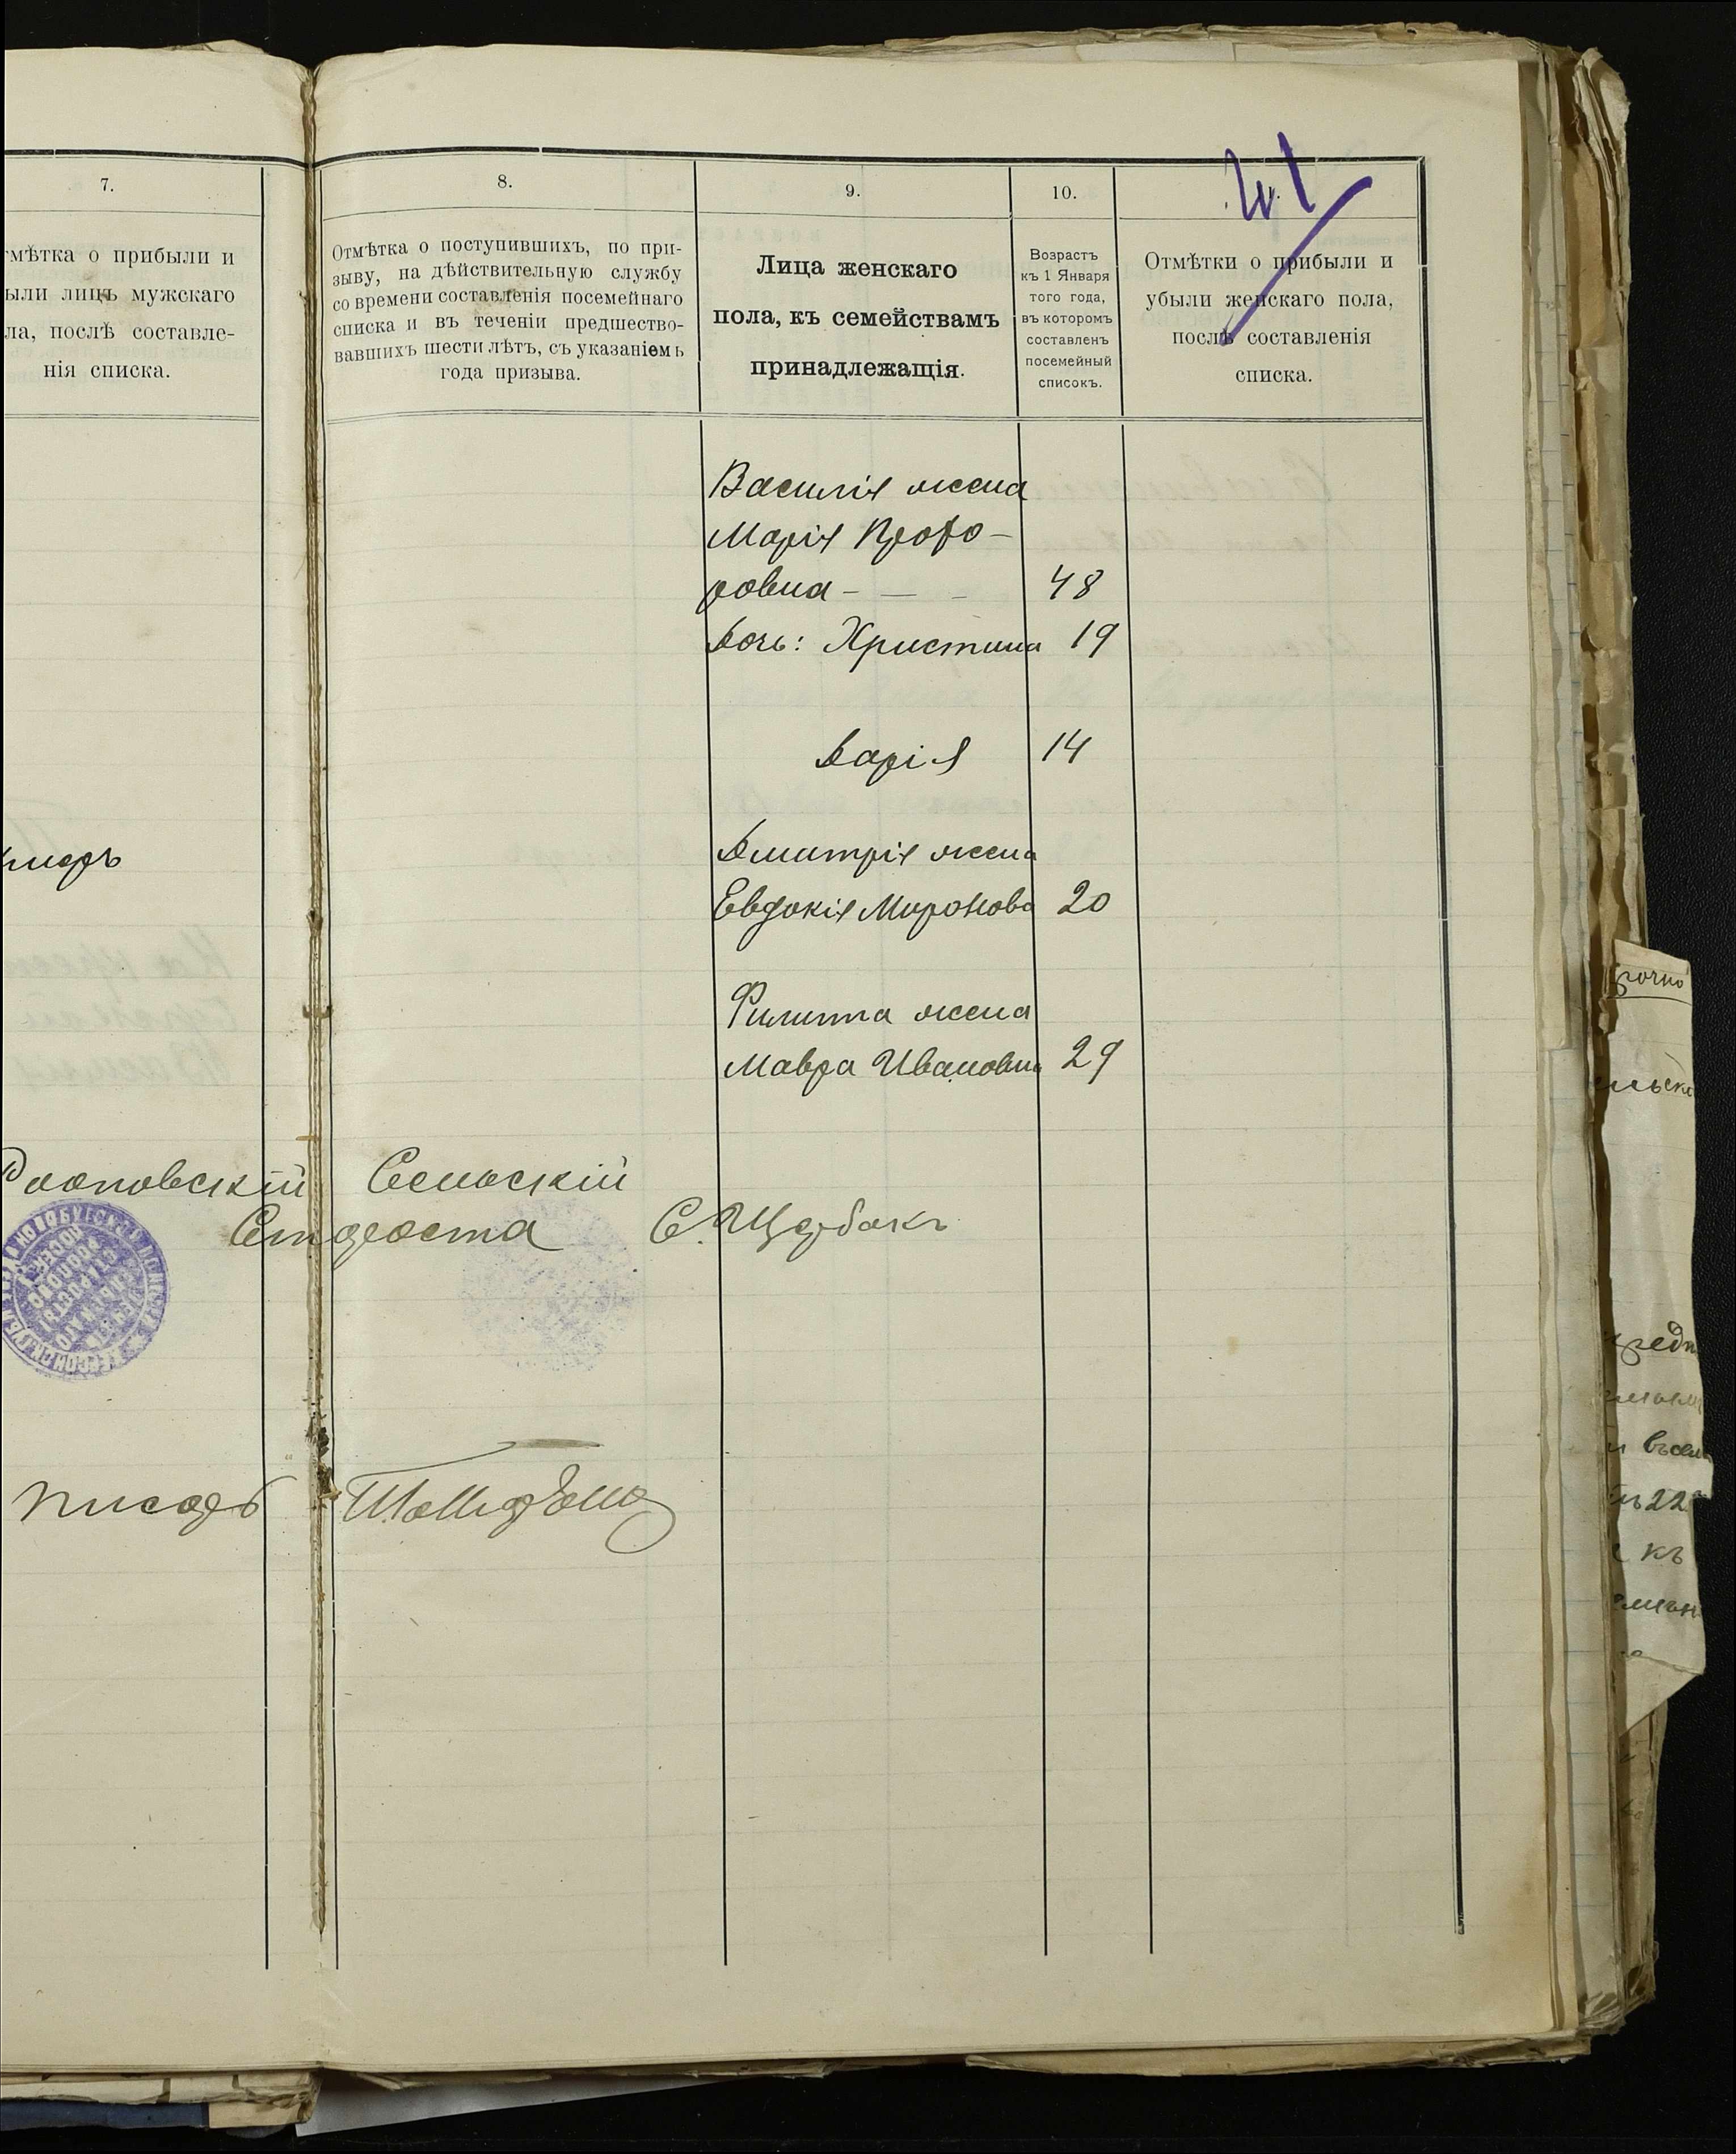 7.
8.
9.
10.
тмѣтка о прибыли и
ыли лицъ мужскаго
ла, послѣ составле-
нія списка.
Отмѣтка о поступившихъ, по при-
зыву, на дѣйствительную службу
со времени составленія посемейнаго
списка и въ теченіи предшество-
вавшихъ шести лѣтъ, съ указаніемъ
года призыва.
Лица женскаго
пола, къ семействамъ
принадлежащія.
Возрастъ
къ 1 Января
того года,
въ которомъ
составленъ
посемейный
списокъ.
Отмѣтки о прибыли и
убыли женскаго пола,
послѣ составленія
списка.
Василія жена
Марія
ровна - — - 48
Дочь: Христина 19
Дарія 14
Дмитрія жена
Евдокія Миронова 20
Филиппа жена
Мавра Ивановна 29
Сельскій
Староста С. Щербакъ
писарь
рочно
къ